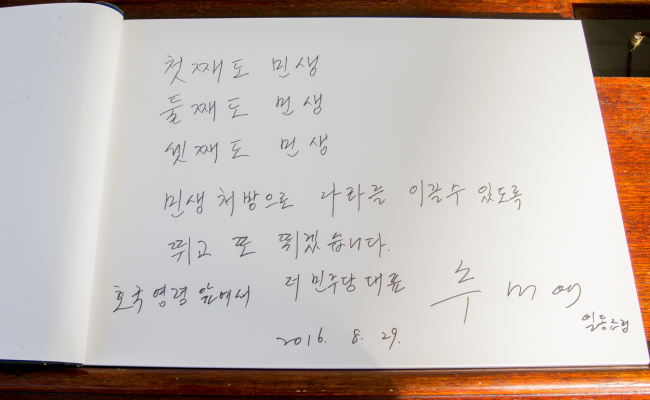 첫째도 민생
둘째도 민생
셋째도 민생
민생처방으로 나라를 이끌수 있도록
뛰고 또 뛰겠습니다.
호국영령 앞에서 더 민주당 대표 추미애
일동
2016. 8. 29.